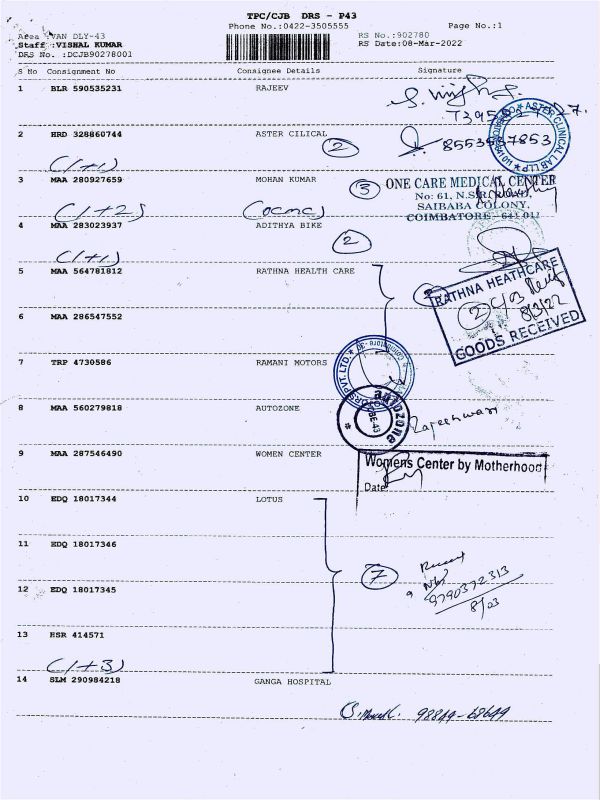 TPC/CJB DRS - P43
Phone No.:0422-3505555 Page No.:1
Area :VAN DLY-43 RS No.:902780
Staff :VISHAL KUMAR RS Date:08-Mar-2022
DRS No. :DCJB90278001
S No Consignment No Consignee Details Signature
1 BLR 590535231 RAJEEV
2 HRD 328860744 ASTER CILICAL 2 8553567853
ASTER CLINICAL LAB LLP
(1+1)
3 MAA 280927659 MOHAN KUMAR 3 ONE CARE MEDICAL CENTER
No: 61, N.S.R. ROAD,
SAIBABA COLONY,
COIMBATORE - 641 011
(1+2)
4 MAA 283023937 ADITHYA BIKE 2
(1+1)
5 MAA 564781812 RATHNA HEALTH CARE
RATHNA HEATHCARE
2
8/3/22
GOODS RECEIVED
6 MAA 286547552
7 TRP 4730586 RAMANI MOTORS
8 MAA 560279818 AUTOZONE autozone CBE-43 Rajeshwari
9 MAA 287546490 WOMEN CENTER Womens Center by Motherhood
Date
10 EDQ 18017344 LOTUS
11 EDQ 18017346
7
12 EDQ 18017345 9790372313
8/03
13 HSR 414571
(1+3)
14 SLM 290984218 GANGA HOSPITAL
98849-68649